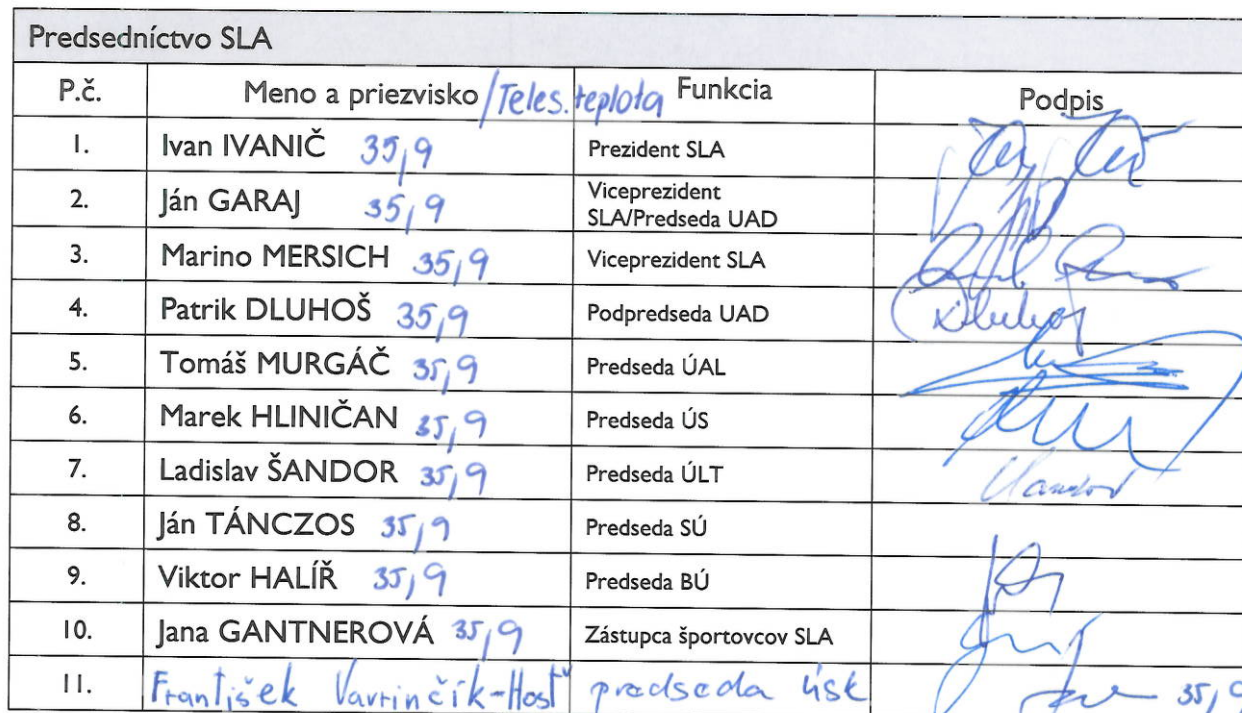 Predsedníctvo SLA
P.č. Meno a priezvisko /Teles. teplota Funkcia Podpis
1. Ivan IVANIČ 35,9 Prezident SLA
2. Ján GARAJ 35,9 Viceprezident SLA/Predseda UAD
3. Marino MERSICH 35,9 Viceprezident SLA
4. Patrik DLUHOŠ 35,9 Podpredseda UAD
5. Tomáš MURGÁČ 35,9 Predseda ÚAL
6. Marek HLINIČAN 35,9 Predseda ÚS
7. Ladislav ŠANDOR 35,9 Predseda ÚLT
8. Ján TÁNCZOS 35,9 Predseda SÚ
9. Viktor HALÍŘ 35,9 Predseda BÚ
10. Jana GANTNEROVÁ 35,9 Zástupca športovcov SLA
11. František Vavrinčík-Hosť predseda 35,9